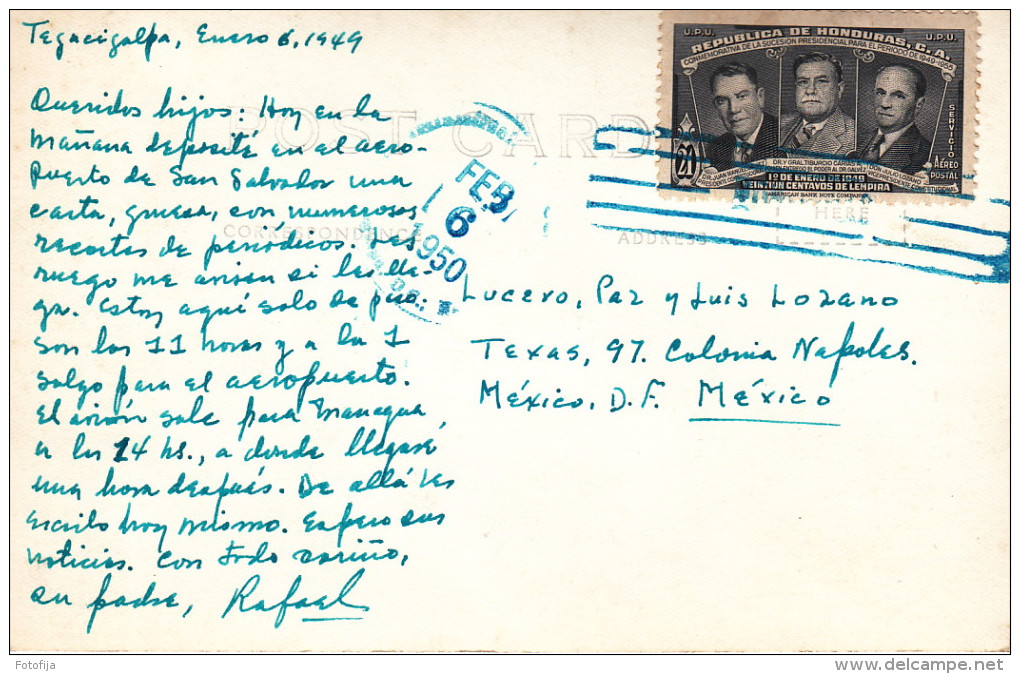 Tegucigalpa, Enero 6, 1949
Queridos hijos: Hoy en la
mañana deposité en el aero-
puerto de San Salvador una
carta, gruesa, con numerosos
recortes de periódicos. Les
ruego me avisen si les lle-
ga. Estoy aquí solo de paso:
son las 11 horas y a la 1
salgo para el aeropuerto.
El avión sale para Managua
a las 14 hs., a donde llegaré
una hora después. De allá les
escribo hoy mismo. Espero sus
noticias. Con todo cariño,
su padre, Rafael
POST CARD
CORRESPONDENCE
ADDRESS
HERE
FEB
6
1950
U.P.U. U.P.U.
REPUBLICA DE HONDURAS, C. A.
CONMEMORATIVA DE LA SUCESION PRESIDENCIAL PARA EL PERIODO DE 1949-1955
SERVICIO
AÉREO
POSTAL
21
1º DE ENERO DE 1949
VEINTIUN CENTAVOS DE LEMPIRA
AMERICAN BANK NOTE COMPANY
Lucero, Paz y Luis Lozano
Texas, 97. Colonia Napoles.
México, D.F. México
Fotofija
www.delcampe.net